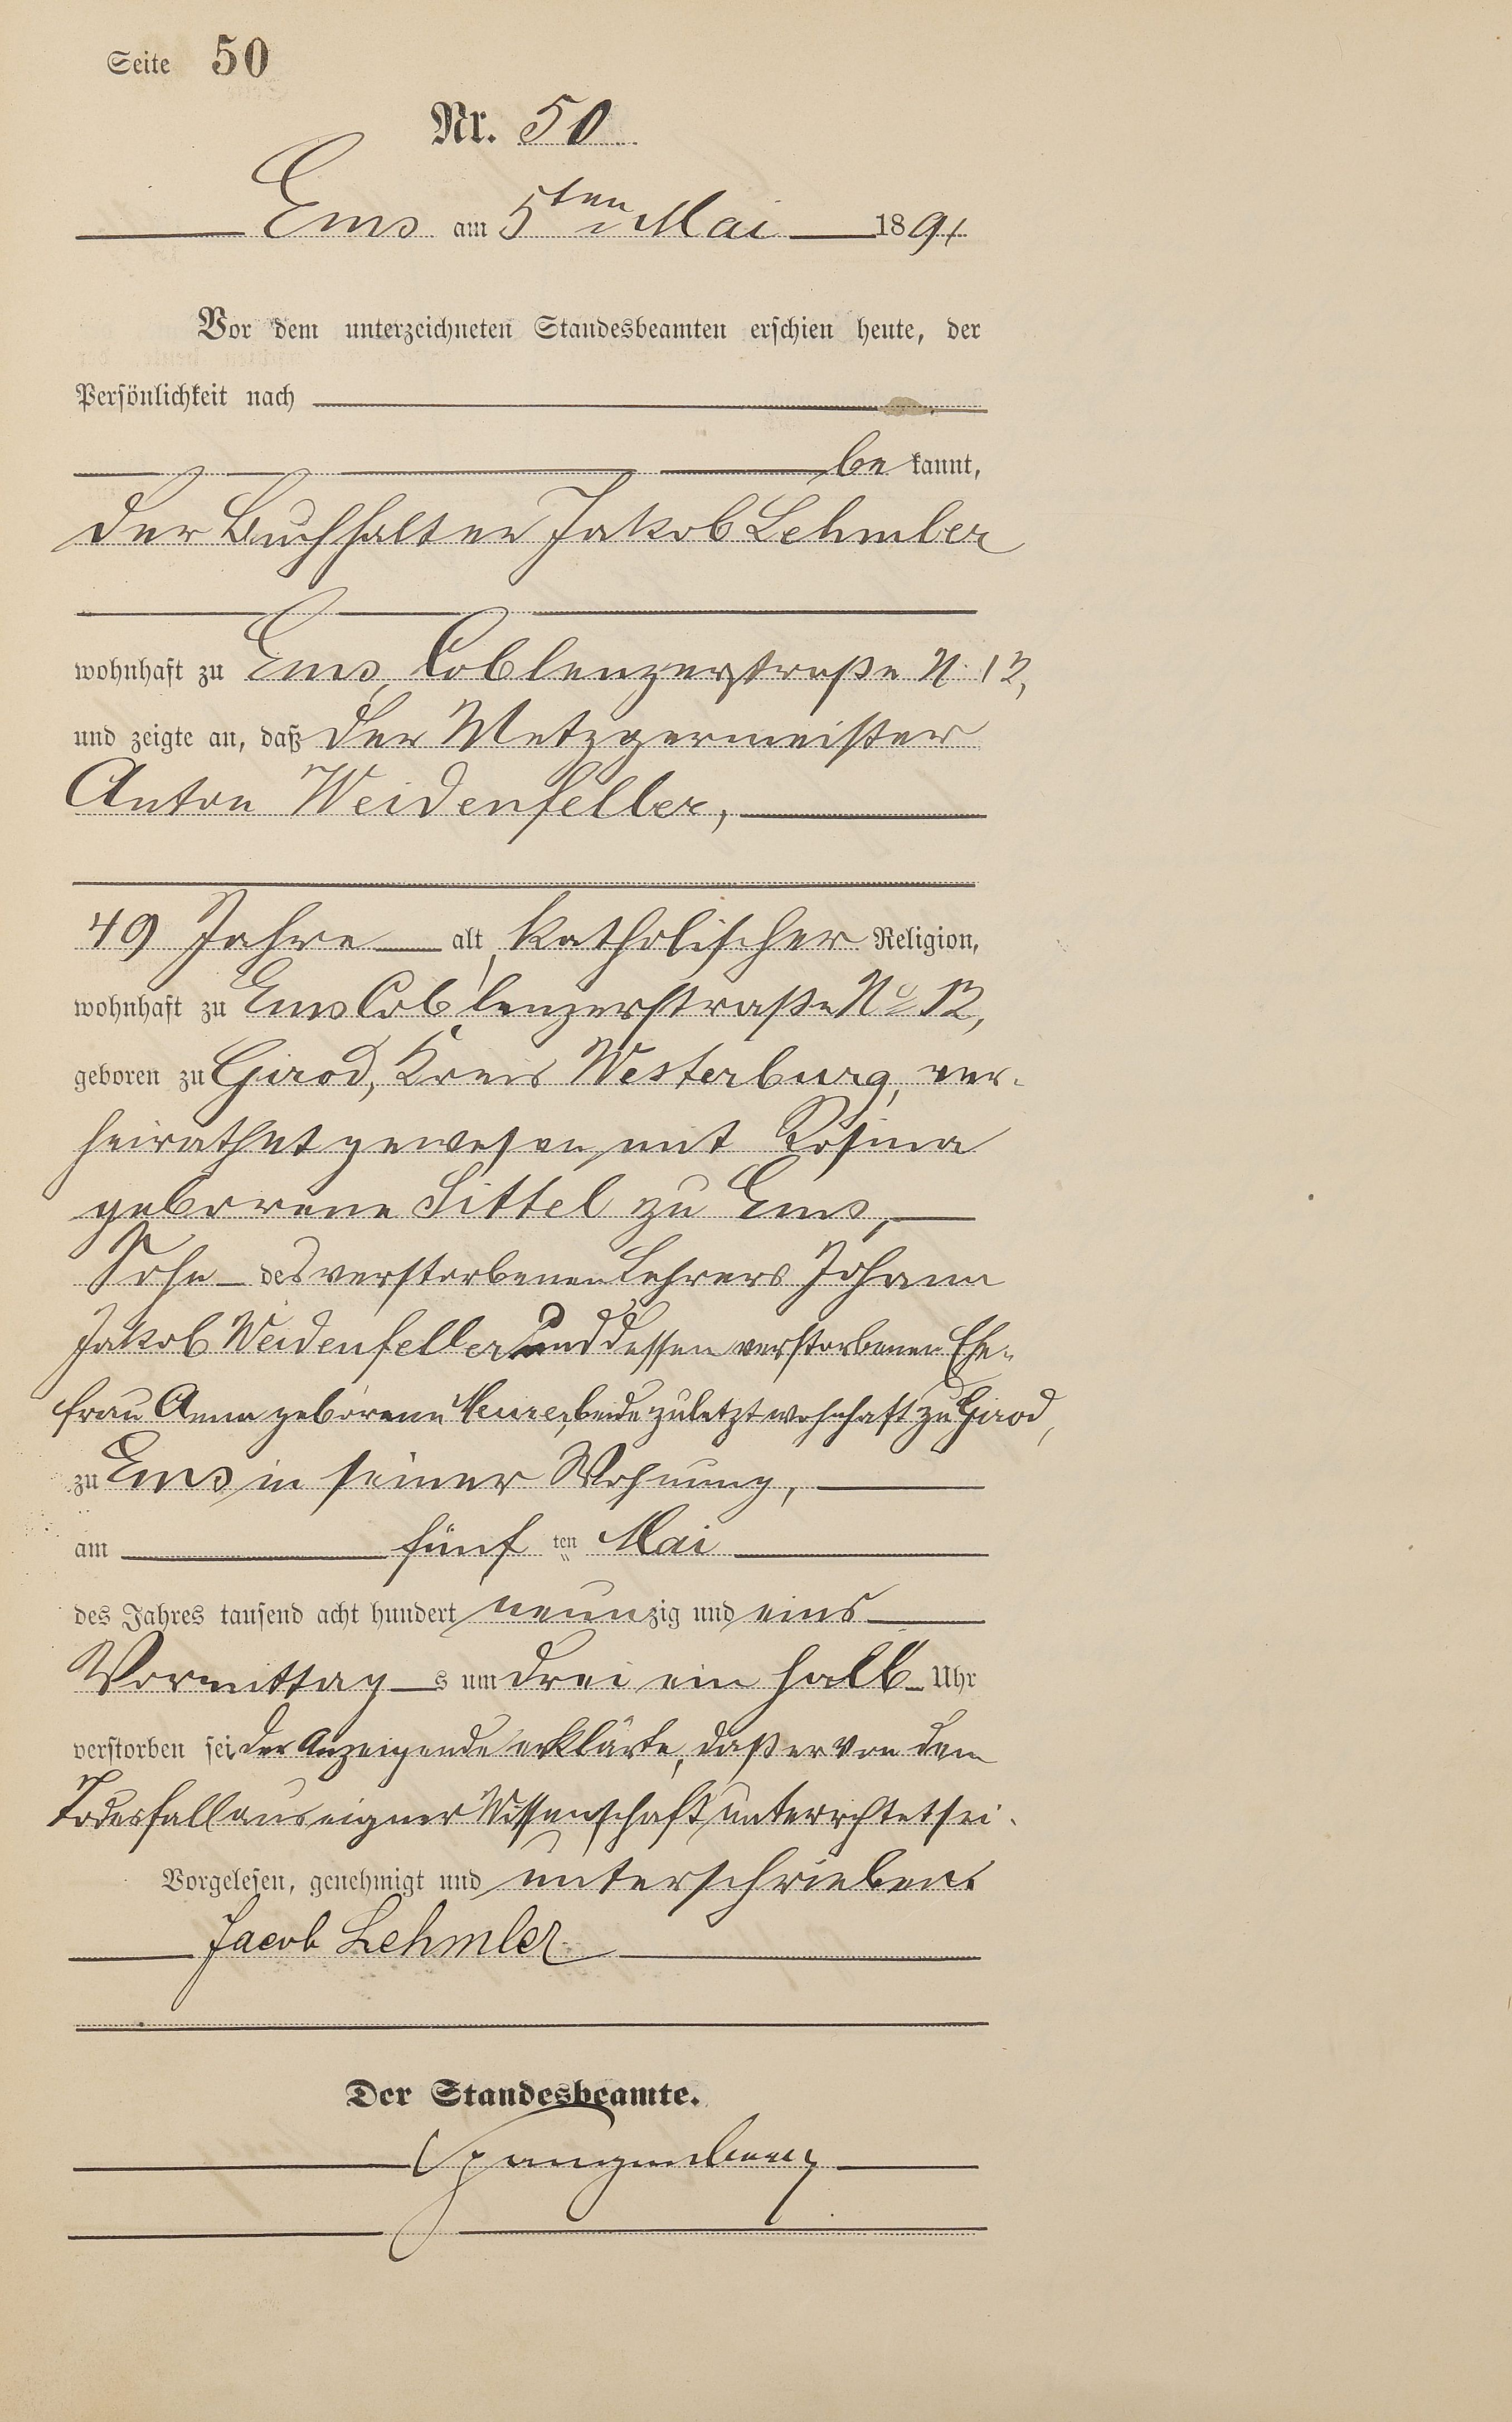 Seite 50
Nr. 50
Ems am 5ten Mai 1891
Vor dem unterzeichneten Standesbeamten erschien heute, der
Persönlichkeit nach
be kannt,
der Buchhalter Jakob Lehmler
wohnhaft zu Ems, Coblenzerstraße N. 12,
und zeigte an, daß der Metzgermeister
Anton Weidenfeller,
49 Jahre alt, katholischer Religion,
wohnhaft zu Ems Coblenzerstraße No 12,
geboren zu Girod, Kreis Westerburg, ver-
heirathet gewesen mit Rosina
geborene Sittel zu Ems,
Sohn des verstorbenen Lehrers Johann
Jakob Weidenfeller und dessen verstorbenen Ehe-
frau Anna geborene Meurer, beide zuletzt wohnhaft zu Girod,
zu Ems in seiner Wohnung,
am fünf ten Mai
des Jahres tausend acht hundert neunzig und eins
Vormittag s um drei ein halb Uhr
verstorben sei, der Anzeigende erklärte, daß er von dem
Todesfall aus eigner Wissenschaft unterrichtet sei.
Vorgelesen, genehmigt und unterschrieben.
Jacob Lehmler
Der Standesbeamte.
Spangenberg